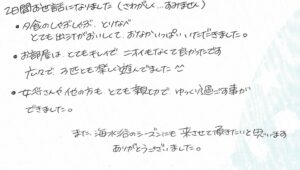 2日間お世話になりました(さわがしく…すみません)
・夕食のしゃぶしゃぶ、とりなべ
とても出汁がおいしくて、おなかいっぱいいただきました。
・お部屋は、とてもキレイで ニオイもなくて良かったです
広々で、3匹とも楽しく遊んでました
・女将さんや他の方も とても親切で ゆっくり過ごす事が
できました。
また、海水浴のシーズンにも 来させて頂きたいと思います
ありがとうございました。